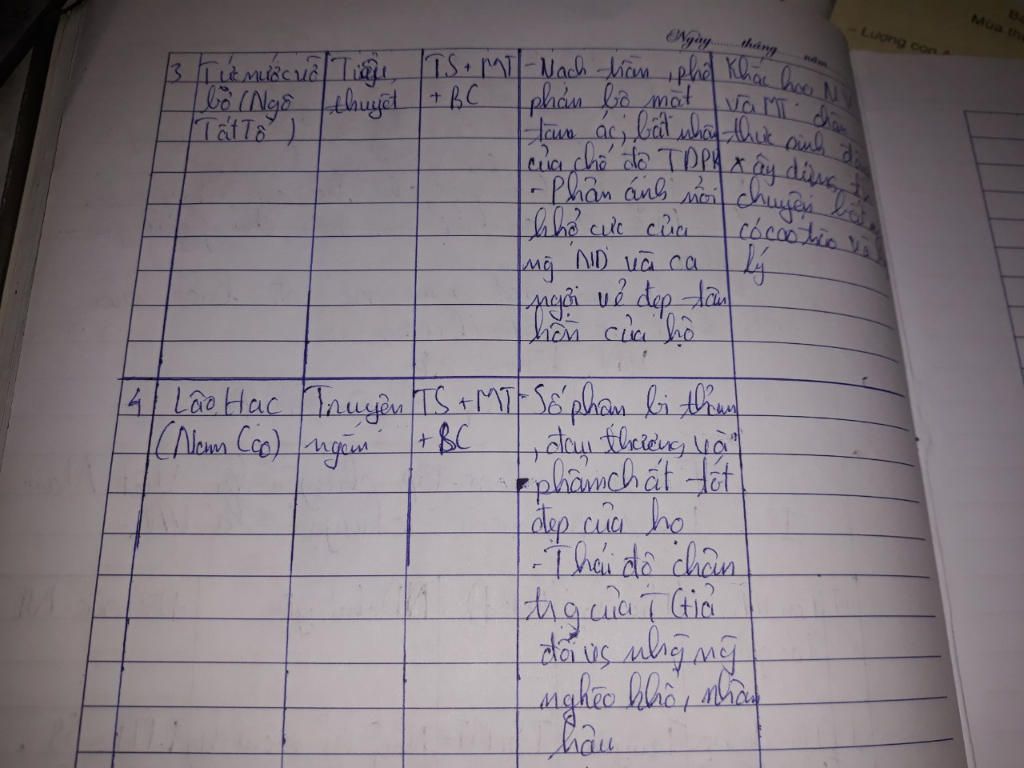 Ngày......tháng......năm
Lượng con
Mùa th
3 Tức nước vỡ bờ (Ngô Tất Tố)
Tiểu thuyết
TS + MT + BC
- Vạch trần, phê
phán bộ mặt
tàn ác, bất nhân
của chế độ TDPK
- Phản ánh nỗi
khổ cực của
ng ND và ca
ngợi vẻ đẹp tâm
hồn của họ
Khắc họa NV
và MT chân
thực sinh
xây dựng
chuyện
có cao trào và
lý
4 Lão Hạc (Nam Cao)
Truyện ngắn
TS + MT + BC
- Số phận bi thảm
, đau thương, và
phẩm chất tốt
đẹp của họ
- Thái độ chân
trg của T(giả
đối vs nhg ng
nghèo khổ, nhân
hậu